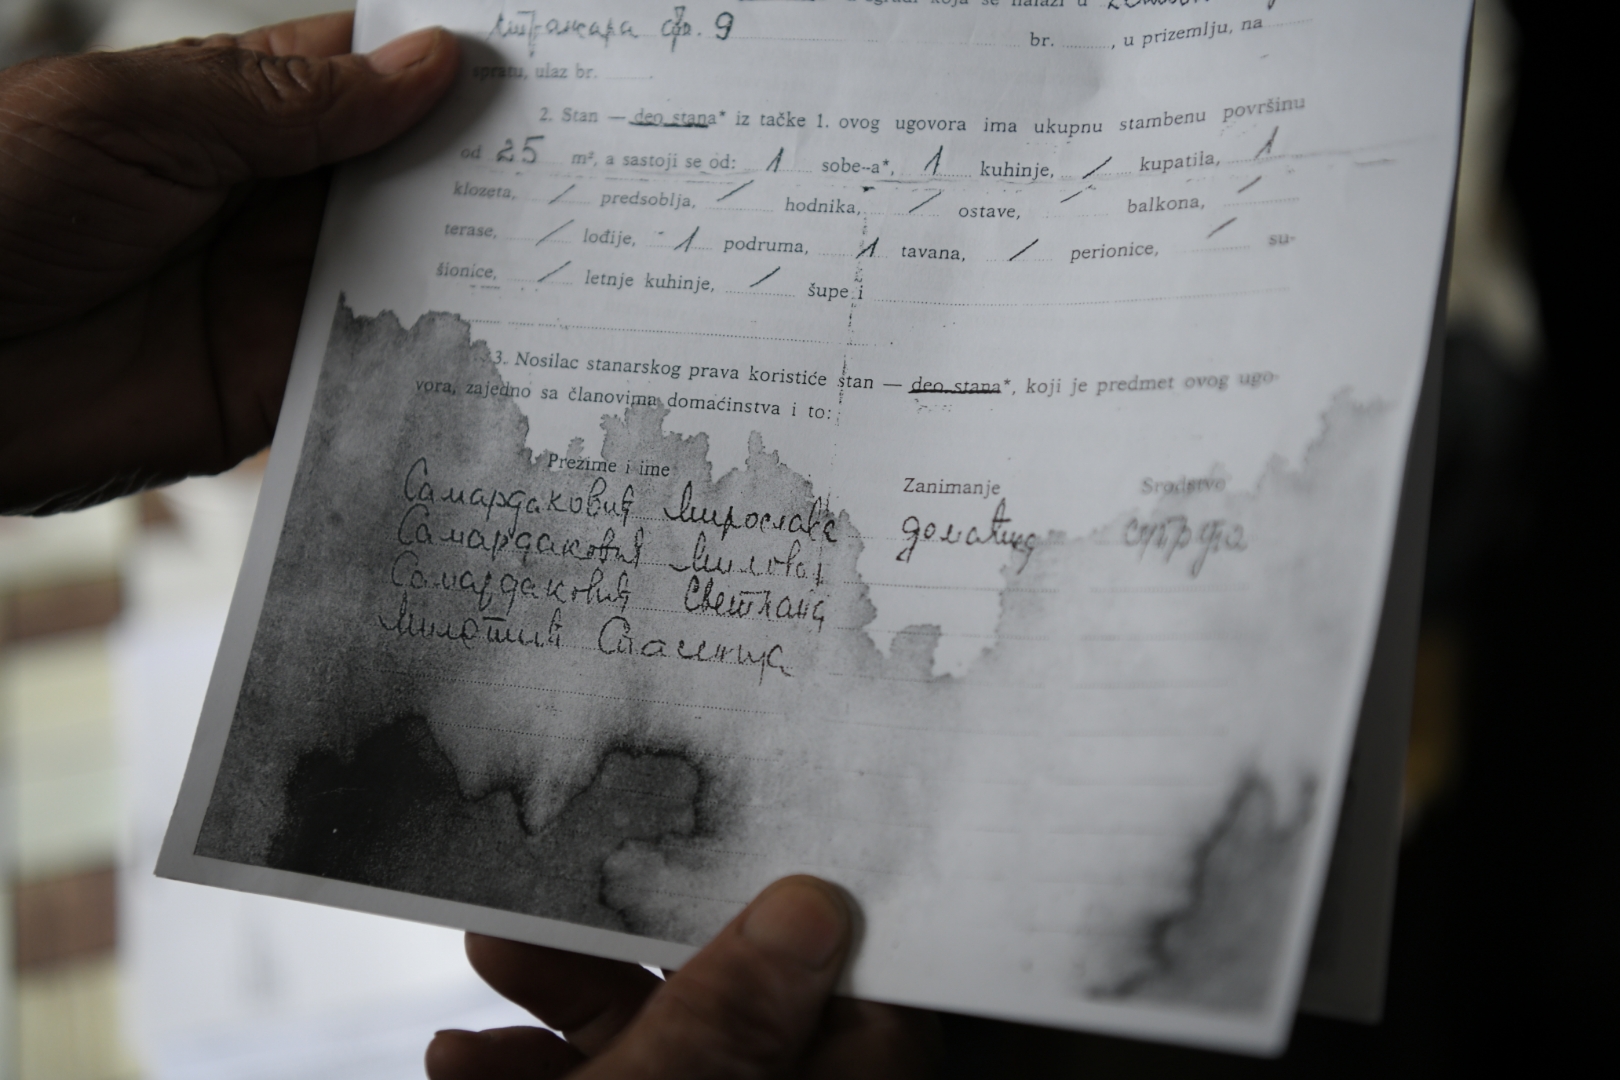 u zgradi koja se nalazi u
бр. 9 br. , u prizemlju, na
spratu, ulaz br.
2. Stan — deo stana* iz tačke 1. ovog ugovora ima ukupnu stambenu površinu
od 25 m², a sastoji se od: 1 sobe-a*, 1 kuhinje, / kupatila, 1
klozeta, / predsoblja, / hodnika, / ostave, / balkona, /
terase, / lođije, 1 podruma, 1 tavana, / perionice, / su-
šionice, / letnje kuhinje, / šupe i
3. Nosilac stanarskog prava koristiće stan — deo stana*, koji je predmet ovog ugo-
vora, zajedno sa članovima domaćinstva i to:
Prezime i ime Zanimanje Srodstvo
Самардаковић Мирослава домаћица супруга
Самардаковић Миловај
Самардаковић Светлана
Милетић Спасенија